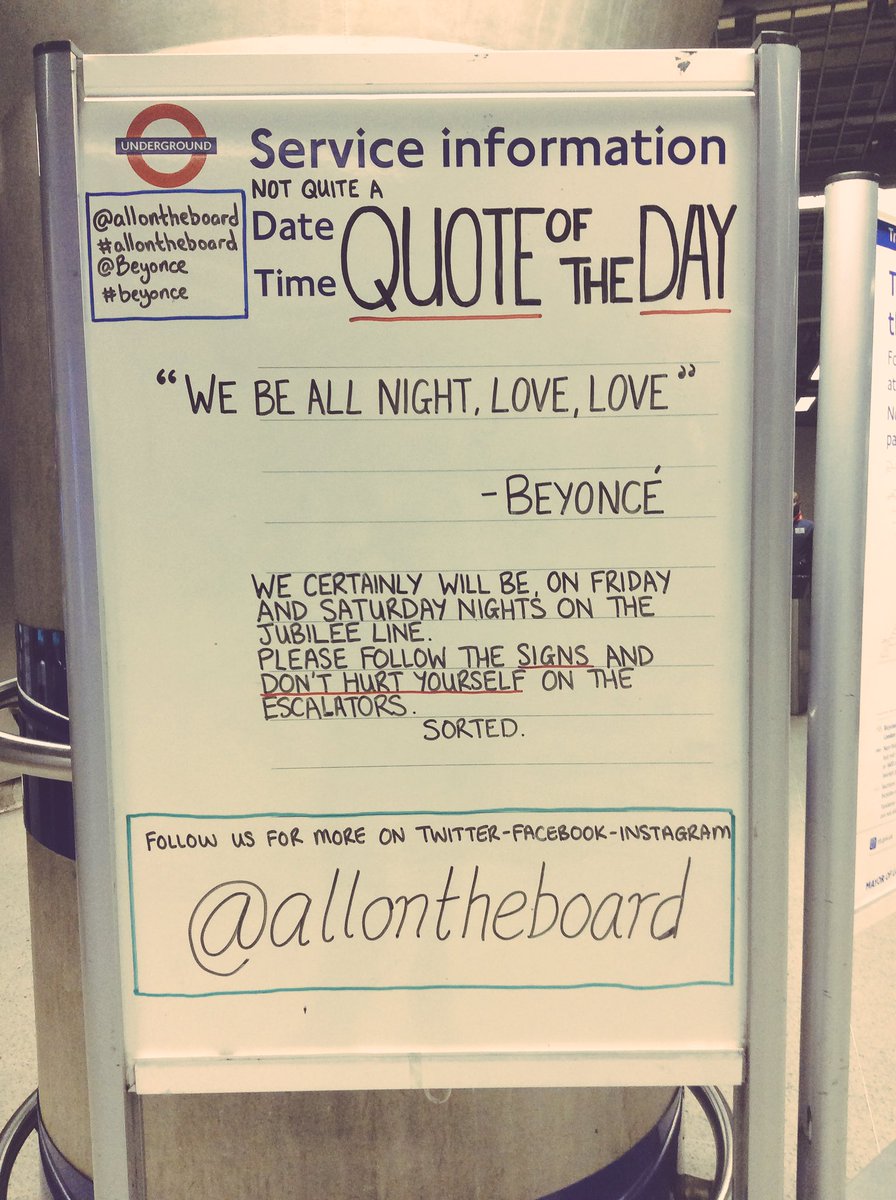 UNDERGROUND
Service information
@allontheboard
#allontheboard
@Beyonce
#beyonce
NOT QUITE A
Date
Time
QUOTE OF THE DAY
“WE BE ALL NIGHT, LOVE, LOVE”
-BEYONCÉ
WE CERTAINLY WILL BE, ON FRIDAY
AND SATURDAY NIGHTS ON THE
JUBILEE LINE.
PLEASE FOLLOW THE SIGNS AND
DON'T HURT YOURSELF ON THE
ESCALATORS.
SORTED.
FOLLOW US FOR MORE ON TWITTER-FACEBOOK-INSTAGRAM
@allontheboard